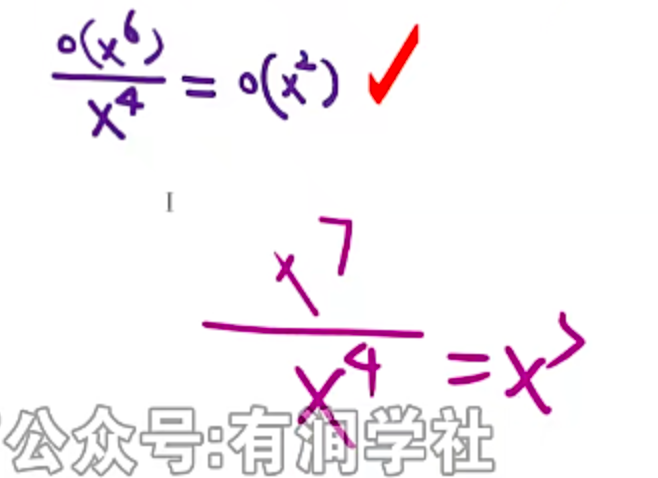 o(x⁶)/x⁴ = o(x²) ✓
x⁷/x⁴ = x³
公众号:有润学社